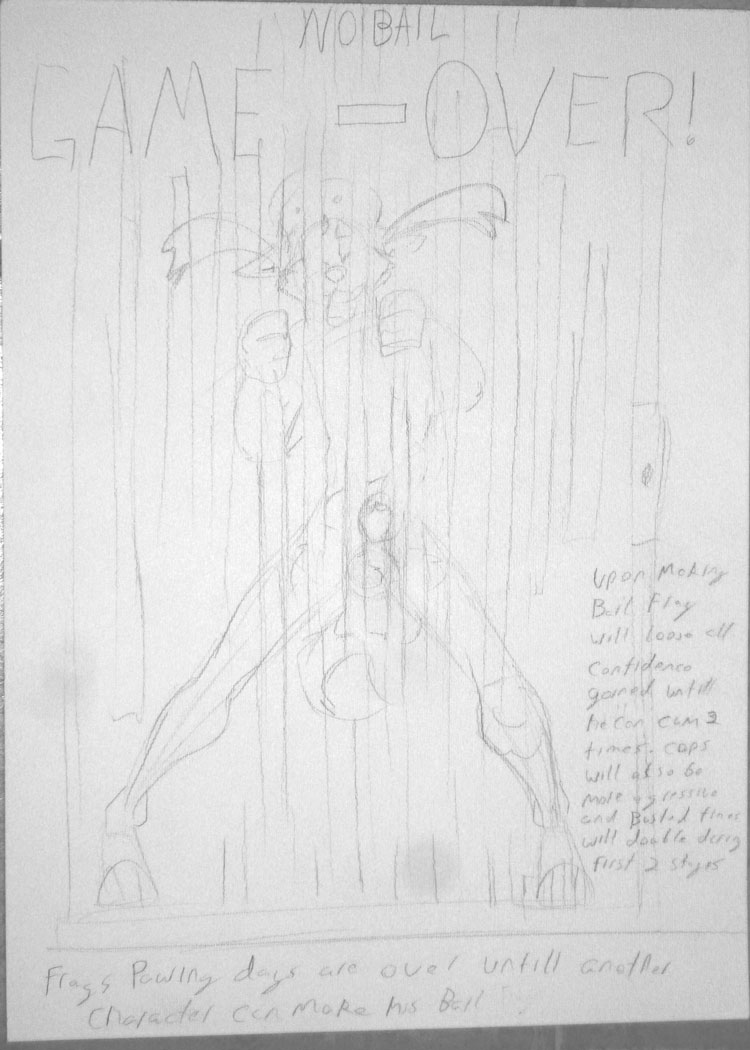 NO BAIL
GAME - OVER!
Upon Making
Bail Frag
will loose all
Confidence
gained untill
he can cum 3
times. cops
will also be
more agressive
and Busted fines
will double during
first 2 stages
Frags Pawing days are over untill another
Character can make his Bail.